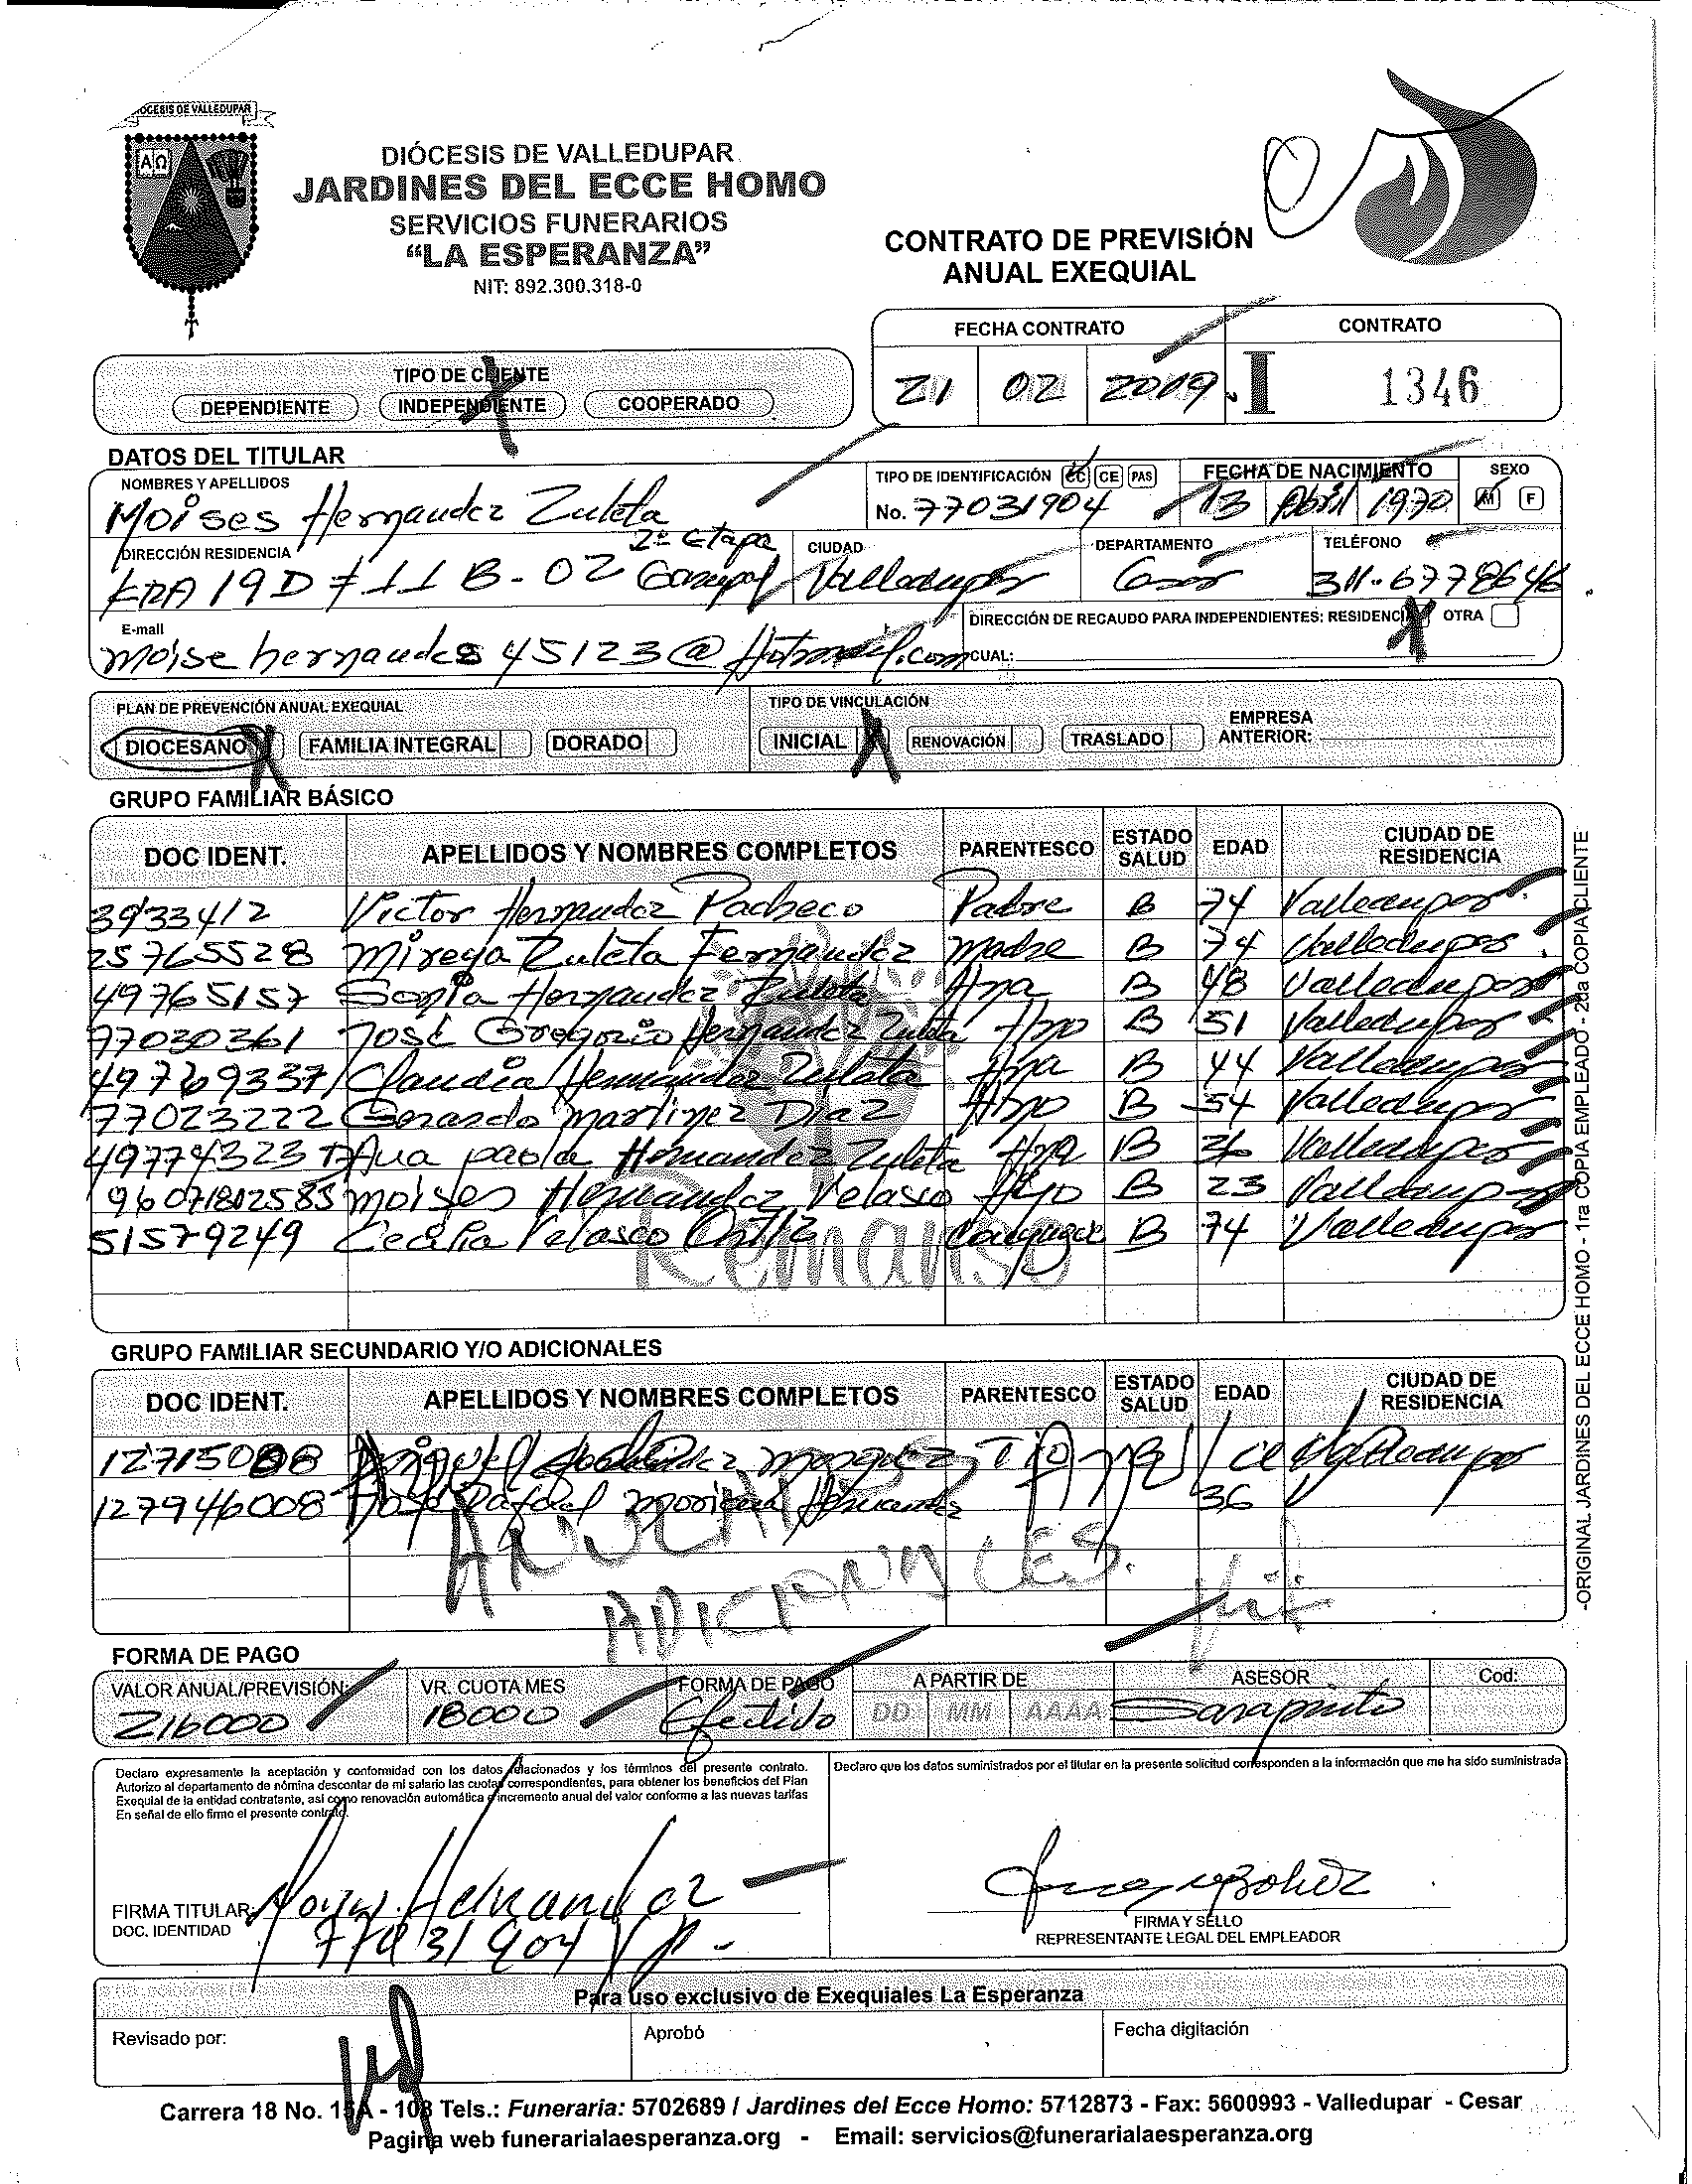 DIOCESIS DE VALLEDUPAR
ΑΩ
DIÓCESIS DE VALLEDUPAR
JARDINES DEL ECCE HOMO
SERVICIOS FUNERARIOS
“LA ESPERANZA”
NIT: 892.300.318-0
CONTRATO DE PREVISIÓN
ANUAL EXEQUIAL
FECHA CONTRATO CONTRATO
21 02 2019 I 1346
TIPO DE CLIENTE
DEPENDIENTE INDEPENDIENTE X COOPERADO
DATOS DEL TITULAR
NOMBRES Y APELLIDOS TIPO DE IDENTIFICACIÓN CC CE PAS FECHA DE NACIMIENTO SEXO
Moises Hernandez Zuleta No. 77031904 13 Abril 1970 M F
DIRECCIÓN RESIDENCIA CIUDAD DEPARTAMENTO TELÉFONO
KRA 19D # 11 B - 02 2a Etapa Valledupar Cesar 311-6778646
E-mail DIRECCIÓN DE RECAUDO PARA INDEPENDIENTES: RESIDENCIA X OTRA
moisehernandes45123@Hotmail.com CUAL:
PLAN DE PREVENCIÓN ANUAL EXEQUIAL TIPO DE VINCULACIÓN
DIOCESANO X FAMILIA INTEGRAL DORADO INICIAL X RENOVACIÓN TRASLADO EMPRESA ANTERIOR:
GRUPO FAMILIAR BÁSICO
DOC IDENT. APELLIDOS Y NOMBRES COMPLETOS PARENTESCO ESTADO SALUD EDAD CIUDAD DE RESIDENCIA
3933412 Victor Hernandez Pacheco Padre B 74 Valledupar
25765528 Mireya Zuleta Fernandez Madre B 74 Valledupar
49765157 Sonia Hernandez Zuleta Hna B 48 Valledupar
77030361 José Gregorio Hernandez Zuleta Hno B 51 Valledupar
49769337 Claudia Hernandez Zuleta Hna B 44 Valledupar
77023222 Gerardo Martinez Diaz Hno B 54 Valledupar
49774323 Ana paola Hernandez Zuleta Hna B Valledupar
960718 02585 Moises Hernandez Velasco Hijo B 23 Valledupar
51579249 Cecilia Velasco Ortiz Conyuge B 74 Valledupar
Remanso
GRUPO FAMILIAR SECUNDARIO Y/O ADICIONALES
DOC IDENT. APELLIDOS Y NOMBRES COMPLETOS PARENTESCO ESTADO SALUD EDAD CIUDAD DE RESIDENCIA
12715088 Miguel Tio Valledupar
127946008 José Rafael Hernandez 36
ANULAR
ADICIONALES.
FORMA DE PAGO
VALOR ANUAL/PREVISIÓN: VR. CUOTA MES FORMA DE PAGO A PARTIR DE ASESOR Cod:
216000 18000 Efectivo DD MM AAAA Sara pinto
Declaro expresamente la aceptación y conformidad con los datos relacionados y los términos del presente contrato.
Autorizo al departamento de nómina descontar de mi salario las cuotas correspondientes, para obtener los beneficios del Plan
Exequial de la entidad contratante, así como renovación automática e incremento anual del valor conforme a las nuevas tarifas
En señal de ello firmo el presente contrato.
Declaro que los datos suministrados por el titular en la presente solicitud corresponden a la información que me ha sido suministrada
FIRMA TITULAR Hernandez
DOC. IDENTIDAD 77031904
FIRMA Y SELLO
REPRESENTANTE LEGAL DEL EMPLEADOR
Para uso exclusivo de Exequiales La Esperanza
Revisado por: Aprobó Fecha digitación
Carrera 18 No. 15A - 108 Tels.: Funeraria: 5702689 / Jardines del Ecce Homo: 5712873 - Fax: 5600993 - Valledupar - Cesar
Pagina web funerarialaesperanza.org - Email: servicios@funerarialaesperanza.org
-ORIGINAL JARDINES DEL ECCE HOMO - 1ra COPIA EMPLEADO - 2da COPIA CLIENTE